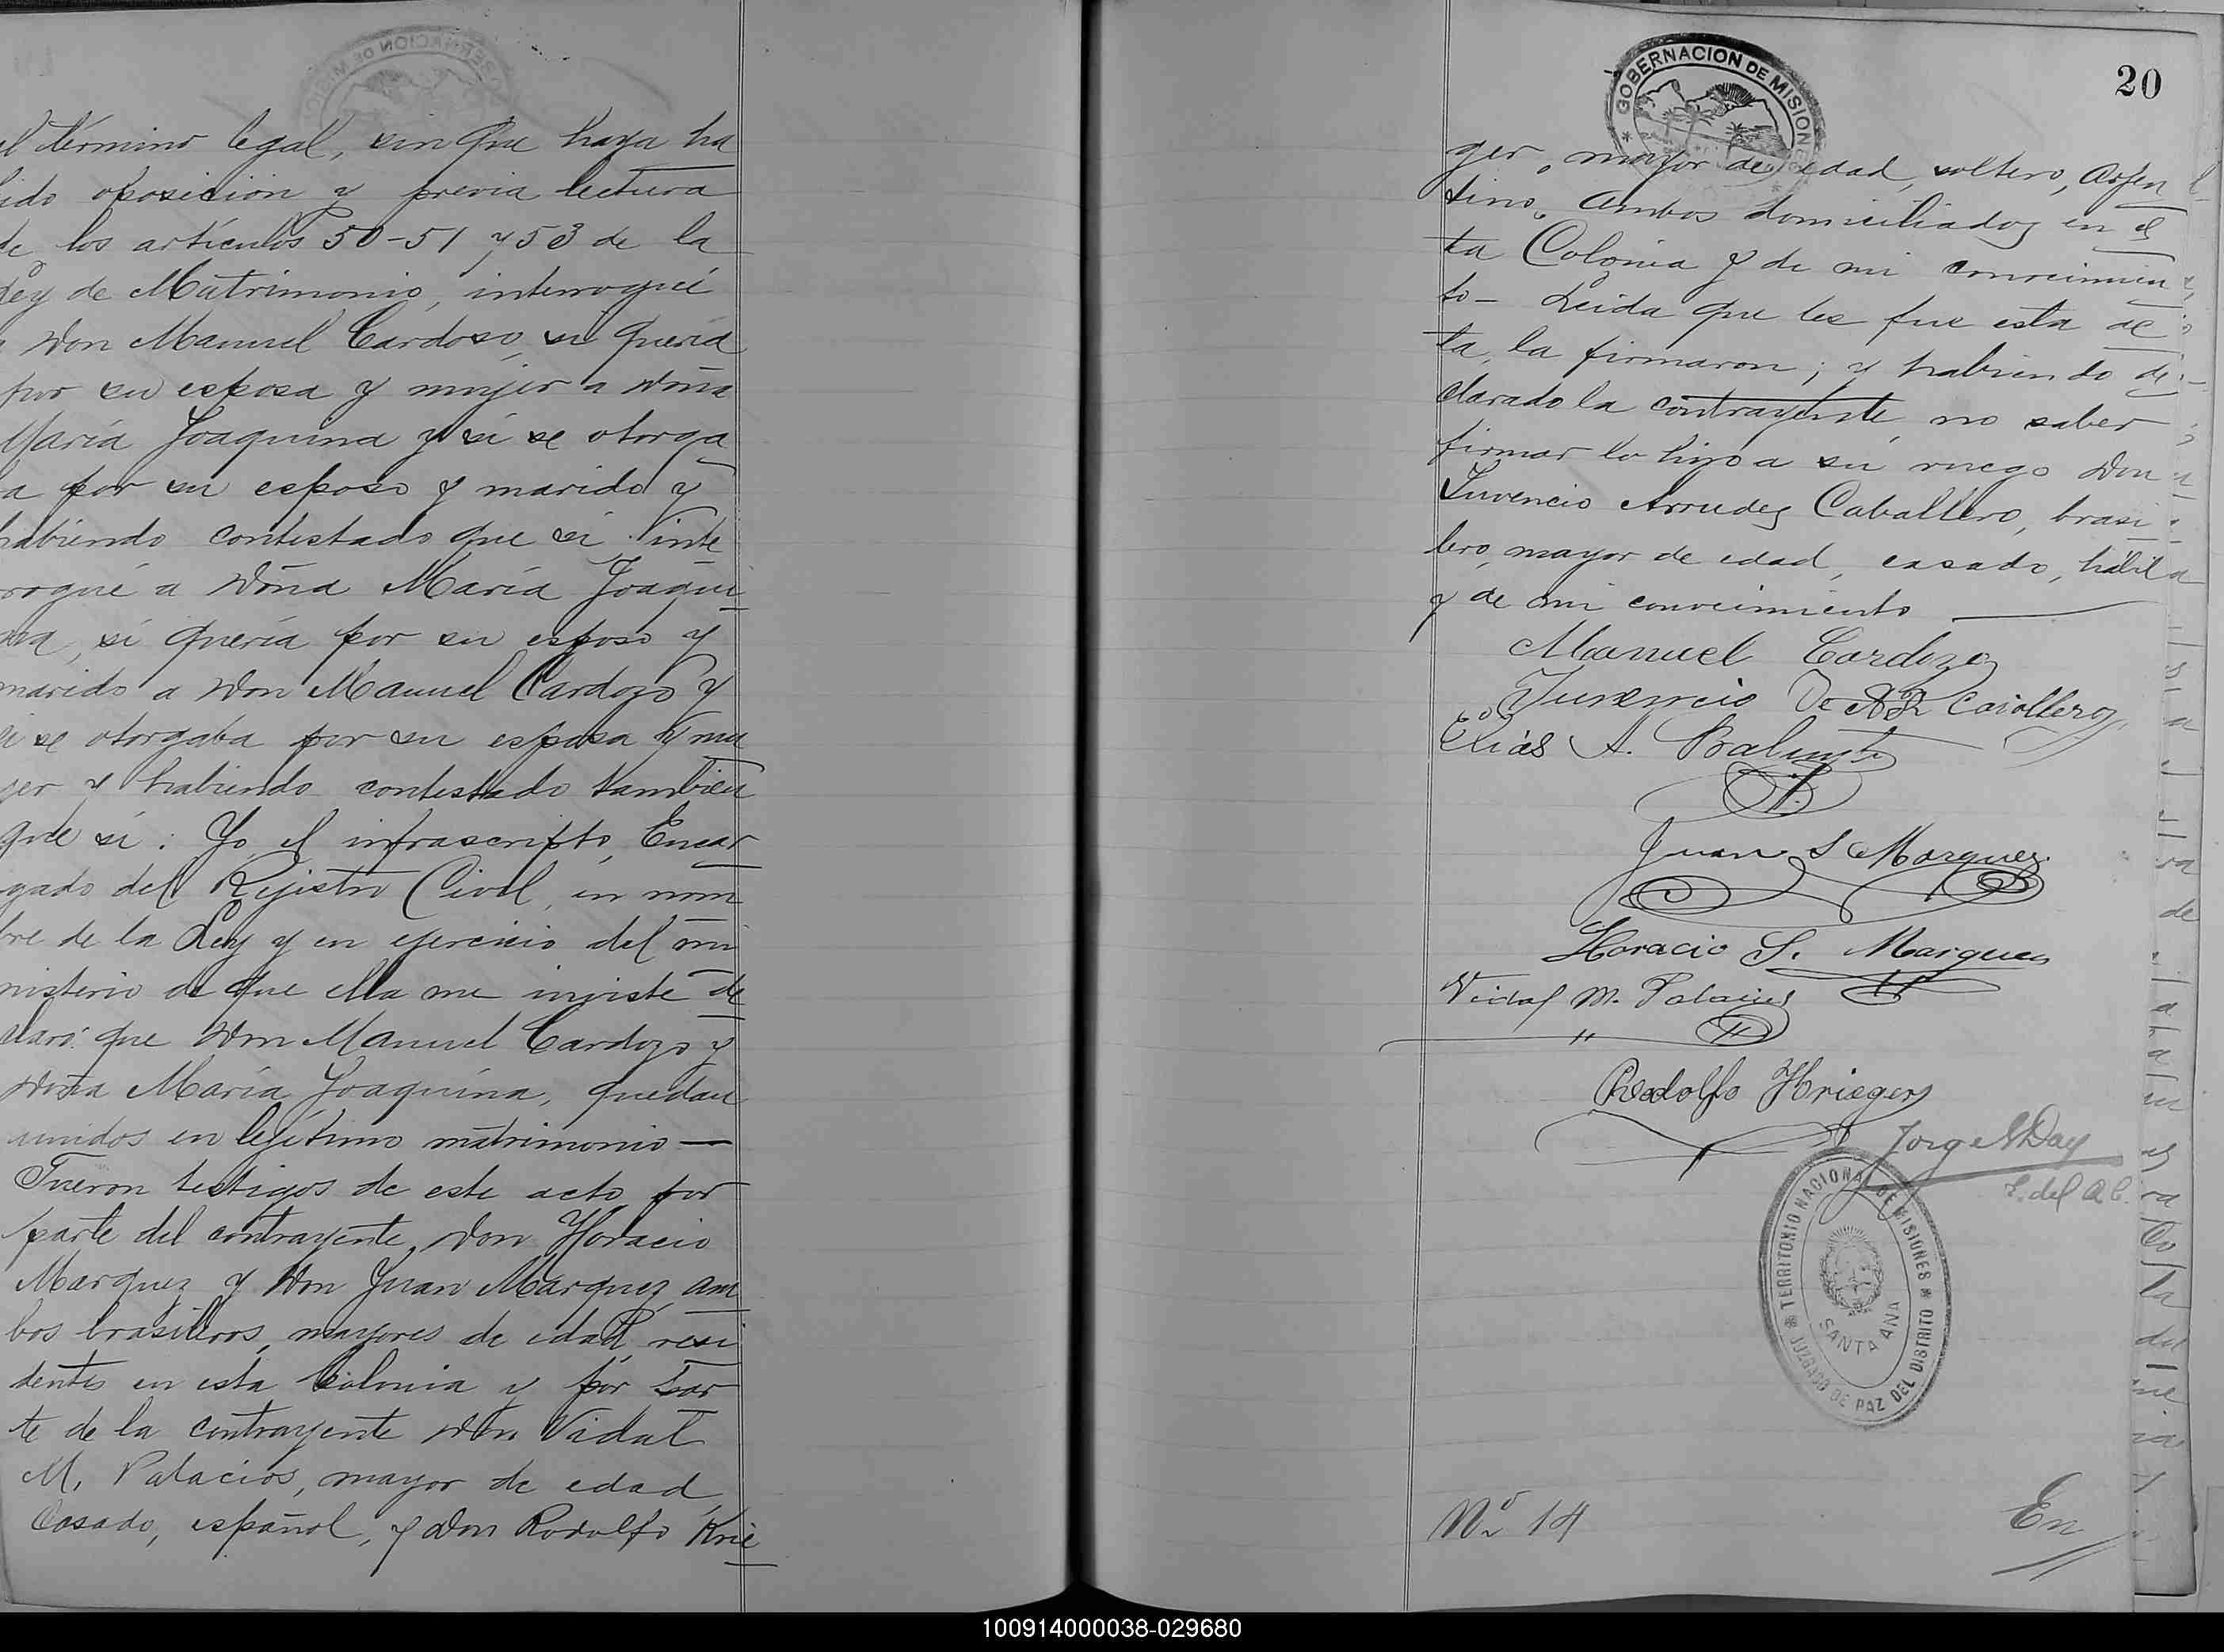 el término legal, sin que haya ha
bido oposición y previa lectura
de los artículos 50-51 y 53 de la
Ley de Matrimonio, interrogué
a Don Manuel Cardoso, si quería
por su esposa y mujer a Doña
María Joaquina y si se otorga
ba por su esposo y marido y
habiendo contestado que si inte
rrogué a Doña María Joaqui
na, si quería por su esposo y
marido a Don Manuel Cardozo y
si se otorgaba por su esposa y mu
ger y habiendo contestado tambien
que si: Yo el infrascripto, Encar
gado del Rejistro Civil, en nom
bre de la Ley y en ejercicio del mi
nisterio de que ella me inviste de
claro: que Don Manuel Cardozo y
Doña María Joaquina, quedan
unidos en lejítimo matrimonio —
Fueron testigos de este acto por
parte del contrayente, Don Horacio
Marquez y Don Juan Marquez am
bos brasileros, mayores de edad, resi
dentes en esta Colonia y por par
te de la contrayente Don Vidal
M. Palacios, mayor de edad,
Casado, español, y Don Rodolfo Krie
GOBERNACION DE MISIONES
20
ger, mayor de edad, soltero, arjen
tino. Ambos domiciliados en es
ta Colonia y de mi conocimien
to — Leida que les fue esta ac
ta, la firmaron; y habiendo de
clarado la contrayente no saber
firmar lo hizo a su ruego Don
Juvencio Arrudes Caballero, brasi
lero, mayor de edad, casado, hábil
y de mi conocimiento —
Manuel Cardozo
Juvencio De Cavollero
Elías A.
Juan S Marquez
Horacio S. Marques
Vidal M. Palacios
Rodolfo Krieger
Jorge Day
E. del R. C.
TERRITORIO NACIONAL DE MISIONES
JUZGADO DE PAZ DEL DISTRITO
SANTA ANA
Nº 14
En
100914000038-029680